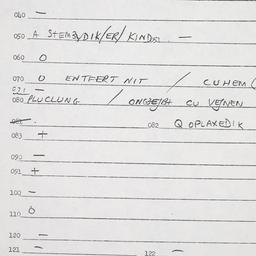 040 —
050 A STEMBVDIK/ER/ KINDE: —
060 O
070 O ENTFERT NIT / CUHEM (
071
080 PLUCLUNG / CU VEJNEN
082 Q OPLAXEDIK
083 +
090 —
091 +
100 —
110 O
120 —
121 — 122 —